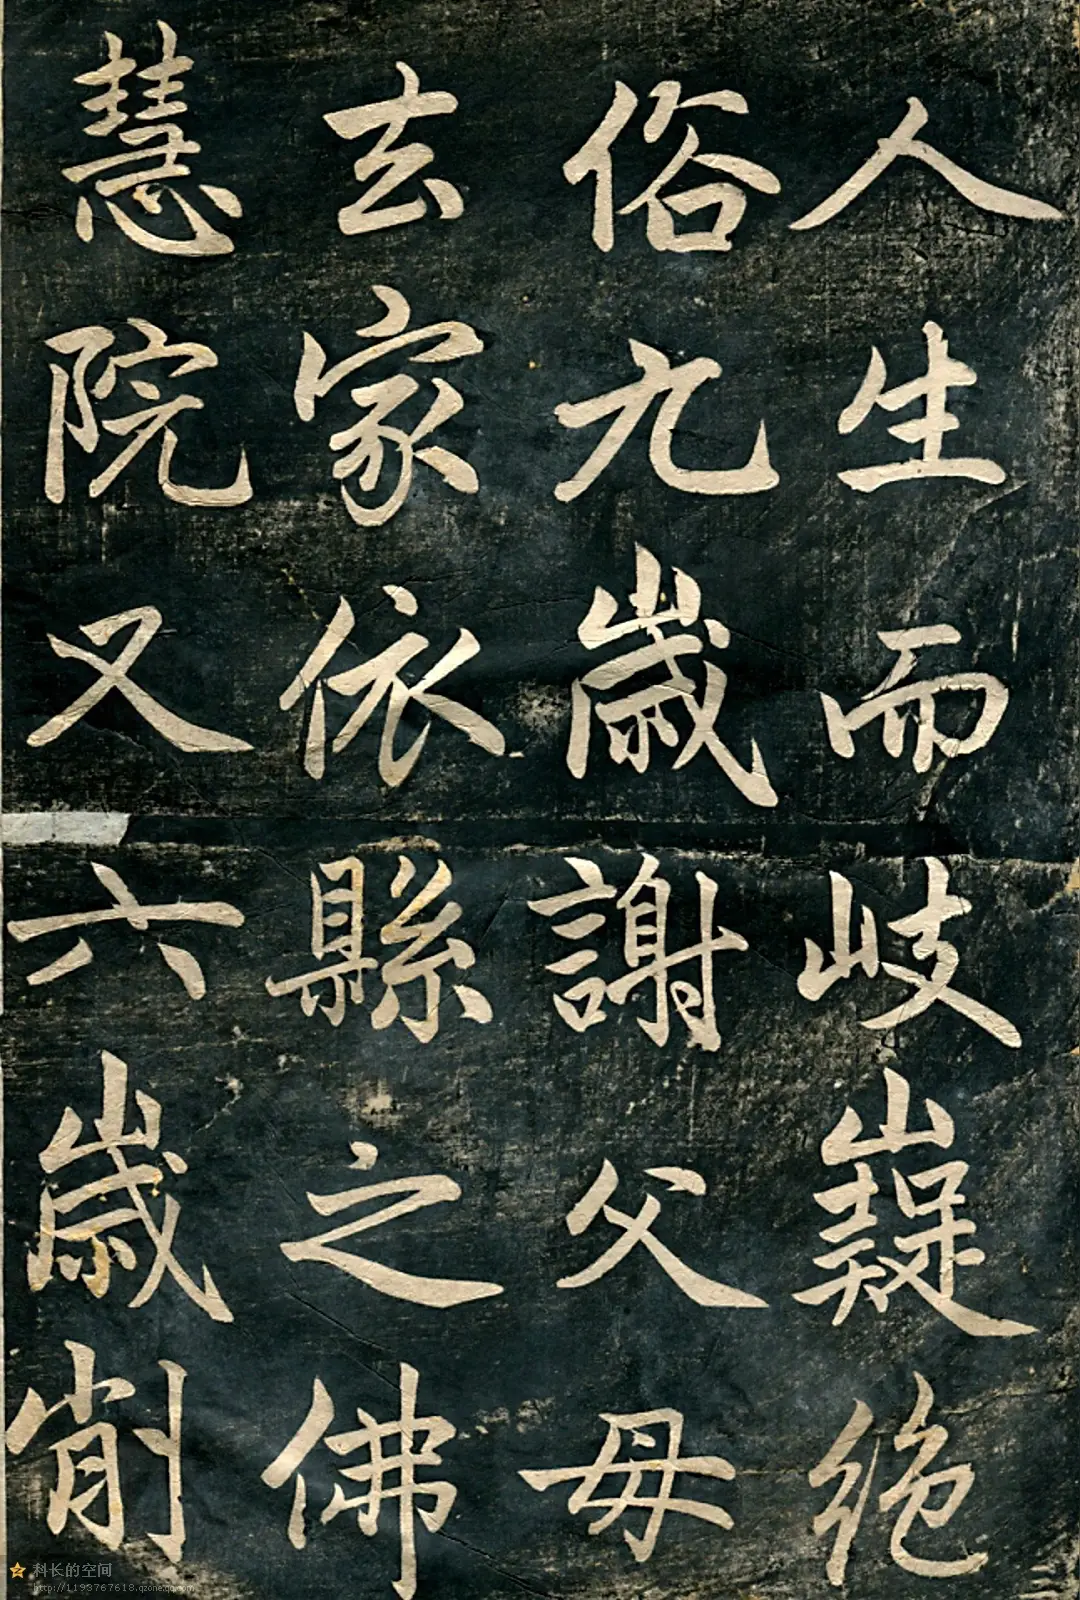 人生而岐嶷絶
俗九歲謝父母
去家依縣之佛
慧院又六歲削
科长的空间
http://1193767618.qzone.qq.com